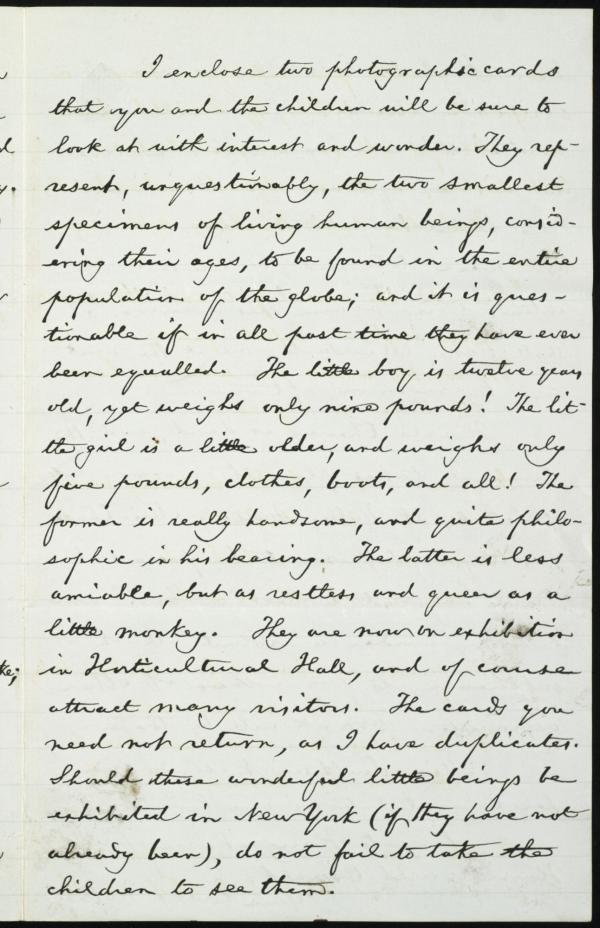 I enclose two photographic cards
that you and the children will be sure to
look at with interest and wonder. They rep-
resent, unquestionably, the two smallest
specimens of living human beings, consid-
ering their ages, to be found in the entire
population of the globe; and it is ques-
tionable if in all past time they have ever
been equalled. The little boy is twelve years
old, yet weighs only nine pounds! The lit-
tle girl is a little older, and weighs only
five pounds, clothes, boots, and all! The
former is really handsome, and quite philo-
sophic in his bearing. The latter is less
amiable, but as restless and queer as a
little monkey. They are now on exhibition
in Horticultural Hall, and of course
attract many visitors. The cards you
need not return, as I have duplicates.
Should these wonderful little beings be
exhibited in New York (if they have not
already been), do not fail to take the
children to see them.